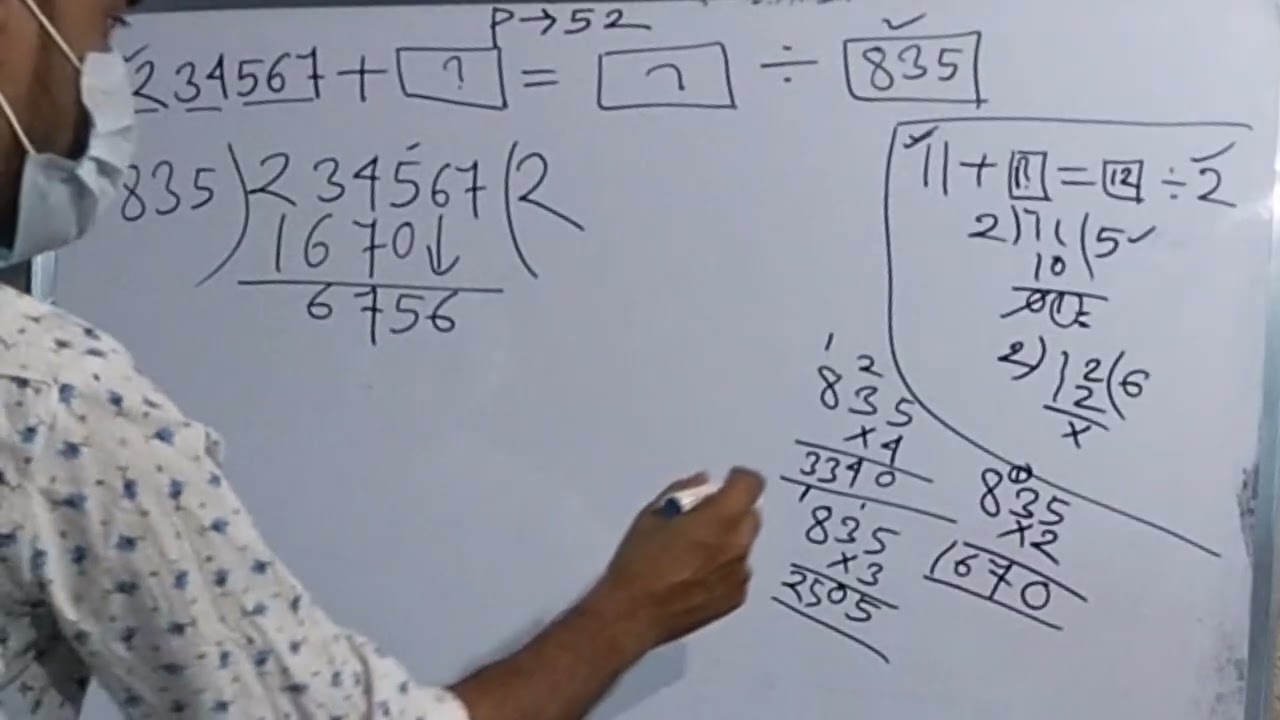 P→52
234567 + ? = ? ÷ 835
835)234567(2
1670↓
6756
11 + 1 = 12 ÷ 2
2)11(5
10
01
2)12(6
12
x
835
x4
3340
835
x3
2505
835
x2
1670